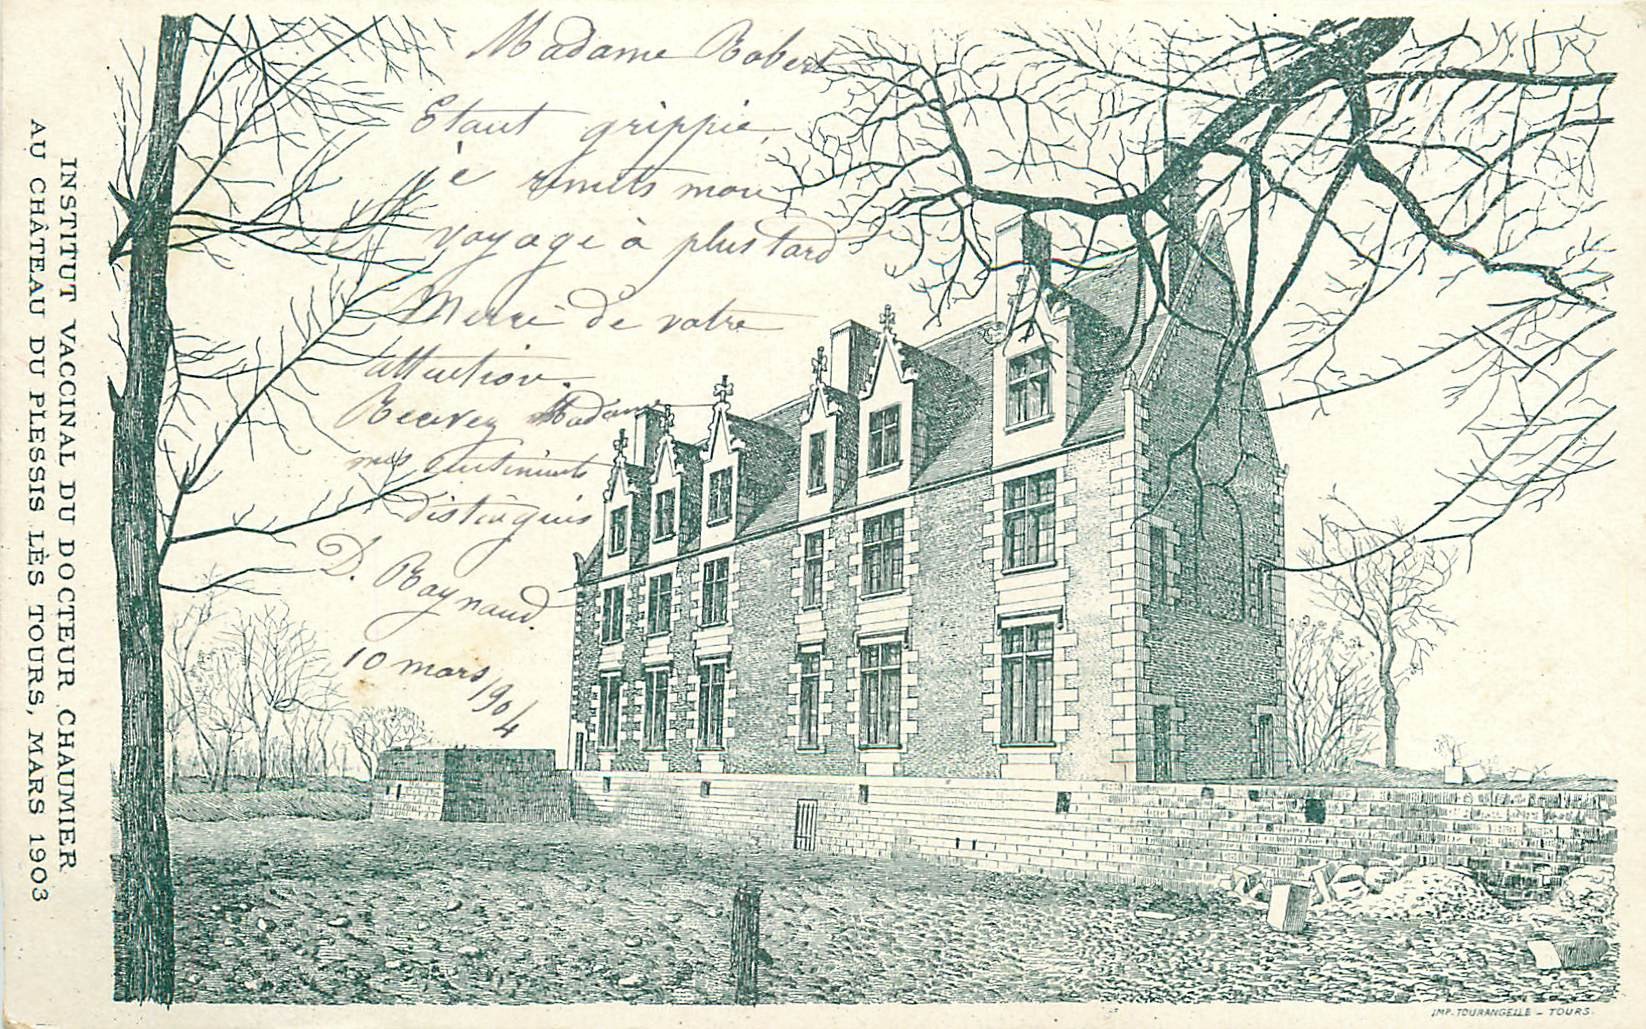 Madame Robert
Etant grippé,
je remets mon
voyage à plus tard
Merci de votre
attention.
Recevez Madame
mes sentiments
distingués
D. Raynaud.
10 mars 1904
INSTITUT VACCINAL DU DOCTEUR CHAUMIER
AU CHÂTEAU DU PLESSIS LÈS TOURS, MARS 1903
IMP. TOURANGELLE - TOURS.